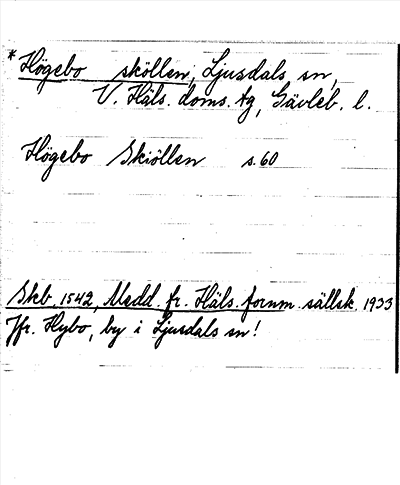 * Högebo sköllen, Ljusdals sn,
V. Häls. doms. tg, Gävleb. l.
Högebo Skiöllen s. 60
Skb. 1542, Medd. fr. Häls. fornm. sällsk. 1933
Jfr. Hybo, by i Ljusdals sn!